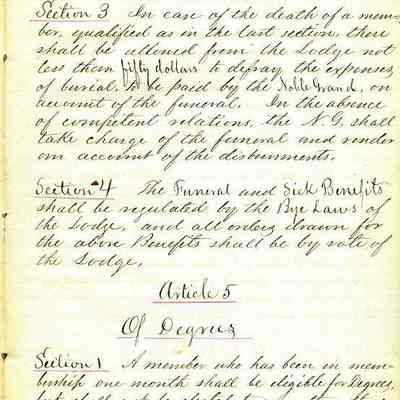 Section 3 In case of the death of a mem-
ber, qualified as in the last section, there
shall be allowed from the Lodge not
less than fifty dollars to defray the expenses
of burial, to be paid by the Noble Grand, on
account of the funeral. In the absence
of competent relations, the N. G. shall
take charge of the funeral and render
an account of the disbursments.
Section 4 The Funeral and Sick Benefits
shall be regulated by the Bye Laws of
the Lodge, and all orders drawn for
the above Benefits shall be by vote of
the Lodge.
Article 5
Of Degrees
Section 1 A member who has been in mem-
bership one month shall be eligible for Degrees,